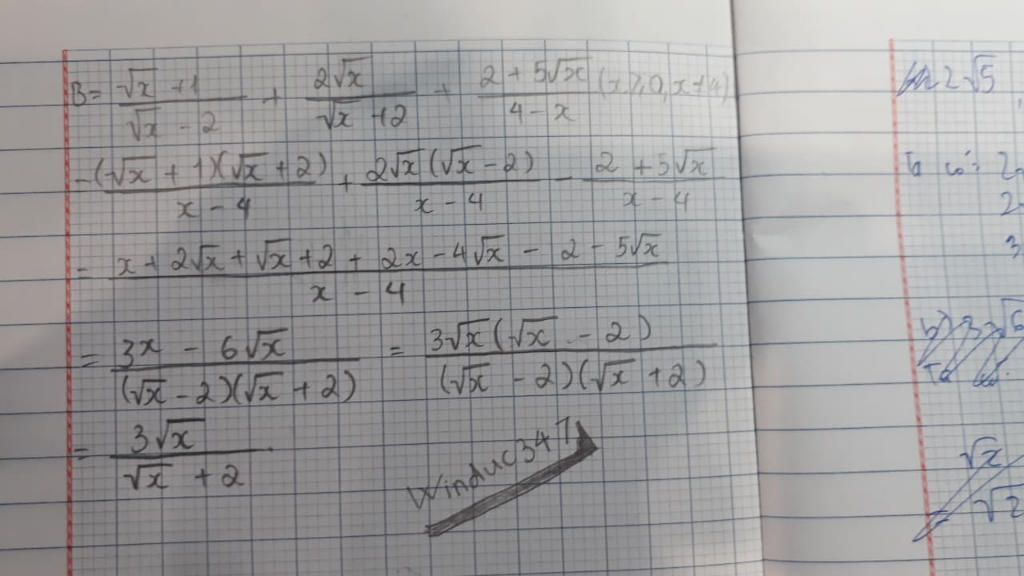 B = (√x + 1)/(√x - 2) + 2√x/(√x + 2) + (2 + 5√x)/(4 - x) (x ≥ 0, x ≠ 4)
= (√x + 1)(√x + 2)/(x - 4) + 2√x(√x - 2)/(x - 4) - (2 + 5√x)/(x - 4)
= (x + 2√x + √x + 2 + 2x - 4√x - 2 - 5√x)/(x - 4)
= (3x - 6√x)/((√x - 2)(√x + 2)) = 3√x(√x - 2)/((√x - 2)(√x + 2))
= 3√x/(√x + 2)
Winduc347
2√5
Ta có: 2
2
3
√x
√2